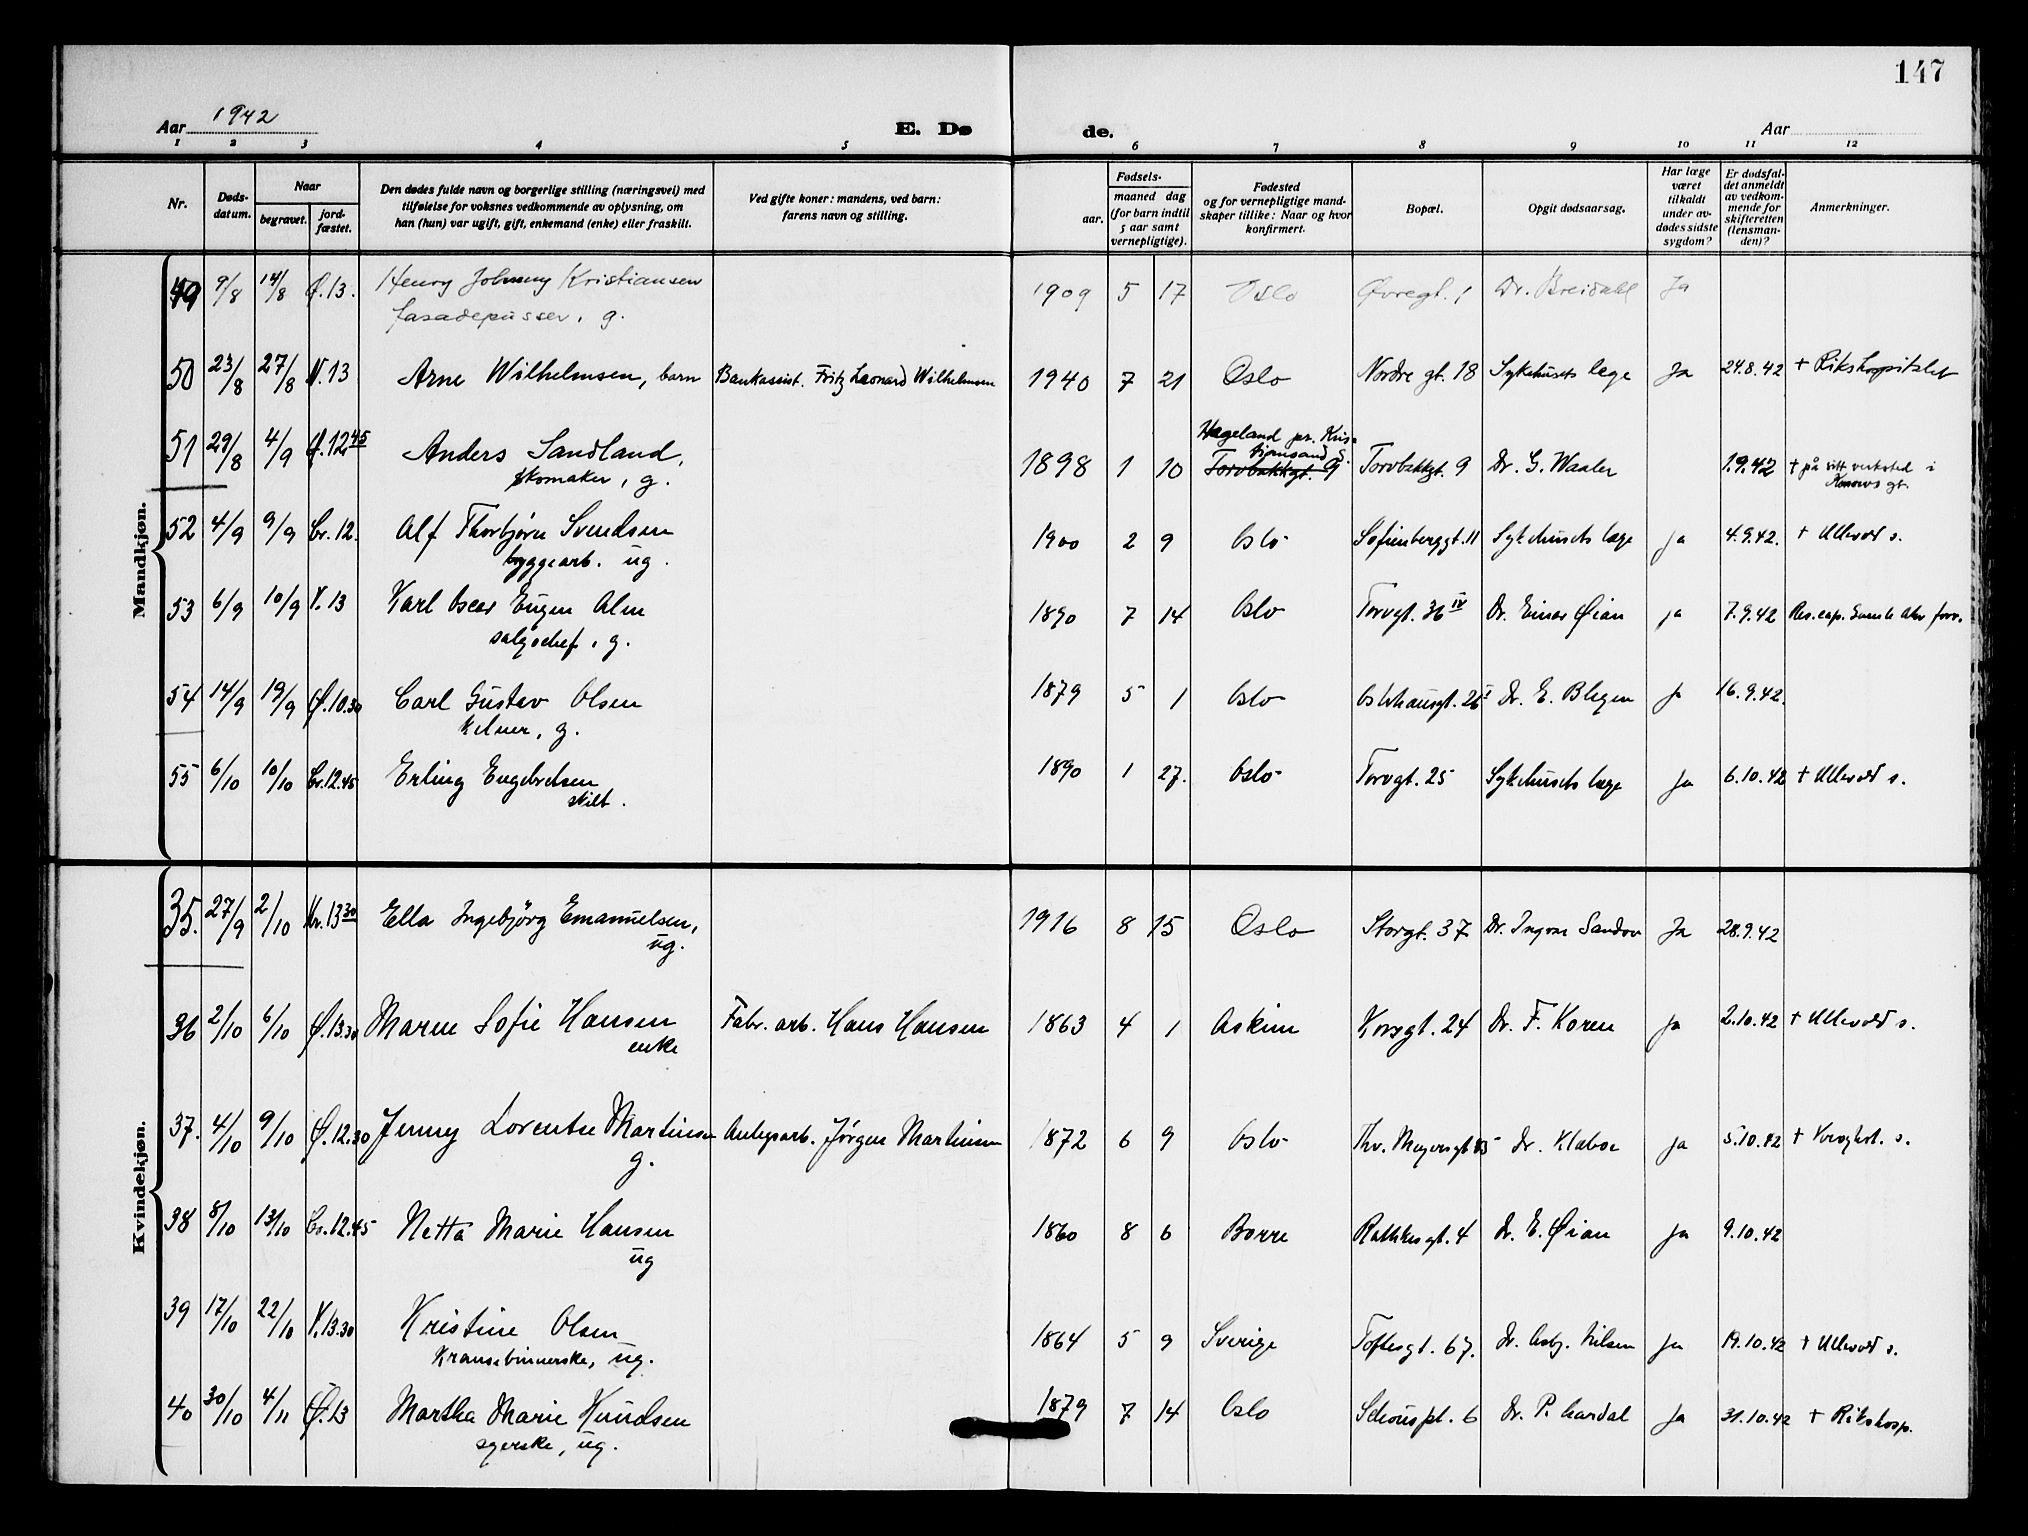 147
Aar 1942 E. Dø de. Aar
1 2 3 4 5 6 7 8 9 10 11 12
Nr. Døds-datum. Naar begravet. jord-fæstet. Den dødes fulde navn og borgerlige stilling (næringsvei) med tilføielse for voksnes vedkommende av oplysning, om han (hun) var ugift, gift, enkemand (enke) eller fraskilt. Ved gifte koner: mandens, ved barn: farens navn og stilling. Fødsels- aar. maaned dag (for barn indtil 5 aar samt vernepligtige). Fødested og for vernepligtige mandskaper tillike: Naar og hvor konfirmert. Bopæl. Opgit dødsaarsag. Har læge været tilkaldt under avdødes sidste sygdom? Er dødsfaldet anmeldt av vedkommende for skifteretten (lensmanden)? Anmerkninger.
Mandkjøn.
49 9/8 14/8 Ø.13. Henry Johnny Kristiansen 1909 5 17 Oslo Øvregt. 1 Dr. Breidahl Ja
fasadepusser, g.
50 23/8 27/8 N.13 Arne Wilhelmsen, barn Bankassist. Fritz Leonard Wilhelmsen 1940 7 21 Oslo Nordre gt. 18 Sykehusets læge Ja 24.8.42 + Rikshospitalet
Hægeland pr. Kris-
tiansand S.
51 29/8 4/9 Ø.12 45 Anders Sandland, 1898 1 10 Torvbakkgt. 9 Torvbakkgt. 9 Dr. G. Waaler 1.9.42 + på sitt verksted i
skomaker, g. gt.
52 4/9 9/9 Cr. 12. Alf Thorbjørn Svendsen 1900 2 9 Oslo Sofienberggt. 11 Sykehusets læge ja 4.9.42. + Ullevål s.
byggearb. ug.
53 6/9 10/9 V. 13 Karl Oscar Eugen Alm 1890 7 14 Oslo Torvgt. 36 IV Dr. Einar Øian ja 7.9.42 Res. cap. Gamle Aker forr.
salgschef, g.
54 14/9 19/9 Ø.10.30 Carl Gustav Olsen 1879 5 1 Oslo Osterhausgt. 26 I Dr. E. Blegen ja 16.9.42.
kelner, g.
55 6/10 10/10 Cr.12.45 Erling Engebretsen 1890 1 27. Oslo Torvgt. 25 Sykehusets læge Ja 6.10.42 + Ullevål s.
skilt.
Kvindekjøn.
35. 27/9 2/10 Kr.13 30 Ella Ingebjörg Emanuelsen, 1916 8 15 Oslo Storgt. 37 Dr. Ingvar Sandov Ja 28.9.42
ug.
36 2/10 6/10 Ø.13.30 Maren Sofie Hansen Fabr. arb. Hans Hansen 1863 4 1 Askim Korsgt. 24 Dr. F. Koren Ja 2.10.42 + Ullevål s.
enke
37. 4/10 9/10 Ø.12.30 Jenny Lorentse Martinsen Anlegsarb. Jørgen Martinsen 1872 6 9 Oslo Thv. Meyersgt Dr. Klaboe ja 5.10.42 + Kroghst. s.
g.
38 8/10 13/10 Cr.12.45 Netta Marie Hansen 1860 8 6 Borre Rathkesgt. 4 Dr. E. Øian Ja 9.10.42
ug
39 17/10 22/10 V.13.30 Kristine Olsen 1864 5 9 Sverige Toftesgt. 67. Dr. Asbj. Nilsen Ja 19.10.42 + Ullevål s.
Kransebinnerske, ug.
40 30/10 4/11 Ø.13 Martha Marie Knudsen 1879 7 14 Oslo Schouspl. 6 Dr. P. Aardal Ja 31.10.42 + Rikshosp.
syerske, ug.